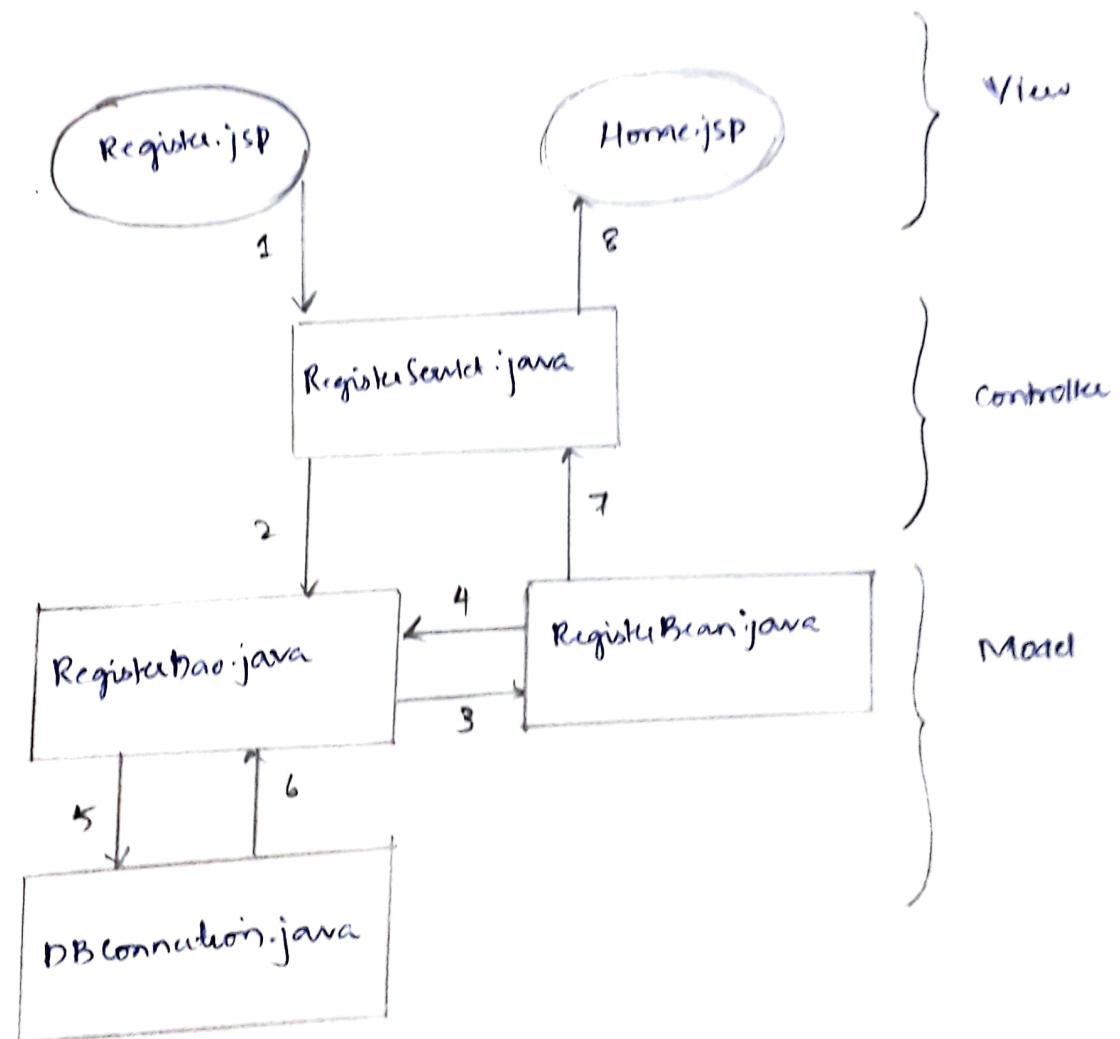 View
Register.jsp
Home.jsp
1
8
RegisterServlet.java
Controller
2
7
4
RegisterBean.java
RegisterDao.java
Model
3
5
6
DBConnection.java